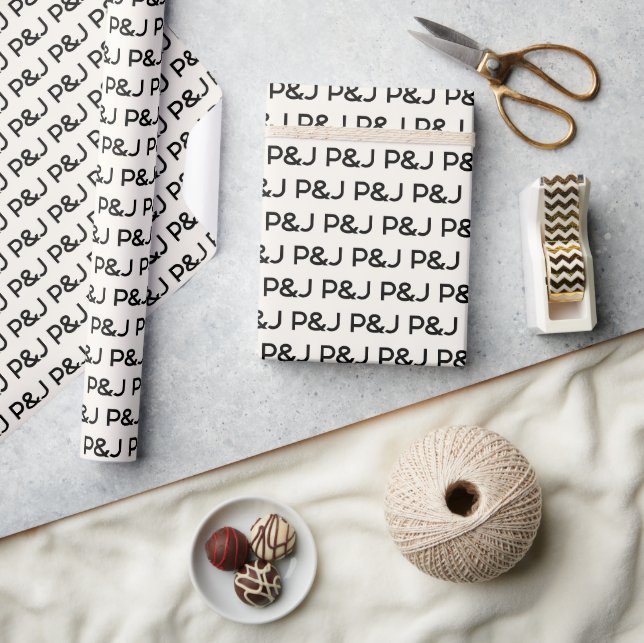 P&J P&J P&J P&J
P&J P&J P&J P&J
P&J P&J P&J P&J
&J P&J P&J P&J
P&J P&J P&J P&J
&J P&J P&J P&J
P&J P&J P&J P&J
&J P&J P&J P&J
P&J P&J P&J P&J